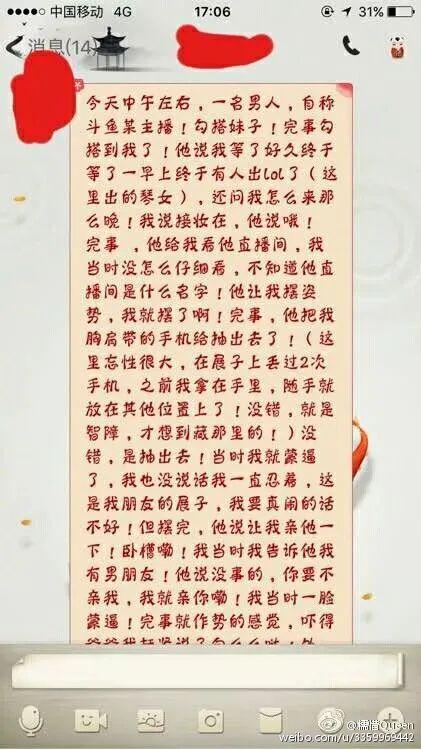 中国移动 4G 17:06 31%
消息(14)
今天中午左右，一名男人，自称
斗鱼某主播！勾搭妹子！完事勾
搭到我了！他说我等了好久终于
等了一早上终于有人出LOL了（这
里出的琴女），还问我怎么来那
么晚！我说接妆在，他说哦！
完事 ，他给我看他直播间，我
当时没怎么仔细看，不知道他直
播间是什么名字！他让我摆姿
势，我就摆了啊！完事，他把我
胸肩带的手机给抽出去了！（这
里忘性很大，在展子上丢过2次
手机，之前我拿在手里，随手就
放在其他位置上了！没错，就是
智障，才想到藏那里的！）没
错，是抽出去！当时我就蒙逼
了，我也没说话我一直忍着，这
是我朋友的展子，我要真闹的话
不好！但摆完，他说让我亲他一
下！卧槽嘞！我当时我告诉他我
有男朋友！他说没事的，你要不
亲我，我就亲你嘞！我当时一脸
蒙逼！完事就作势的感觉，吓得
weibo.com/u/3359969442